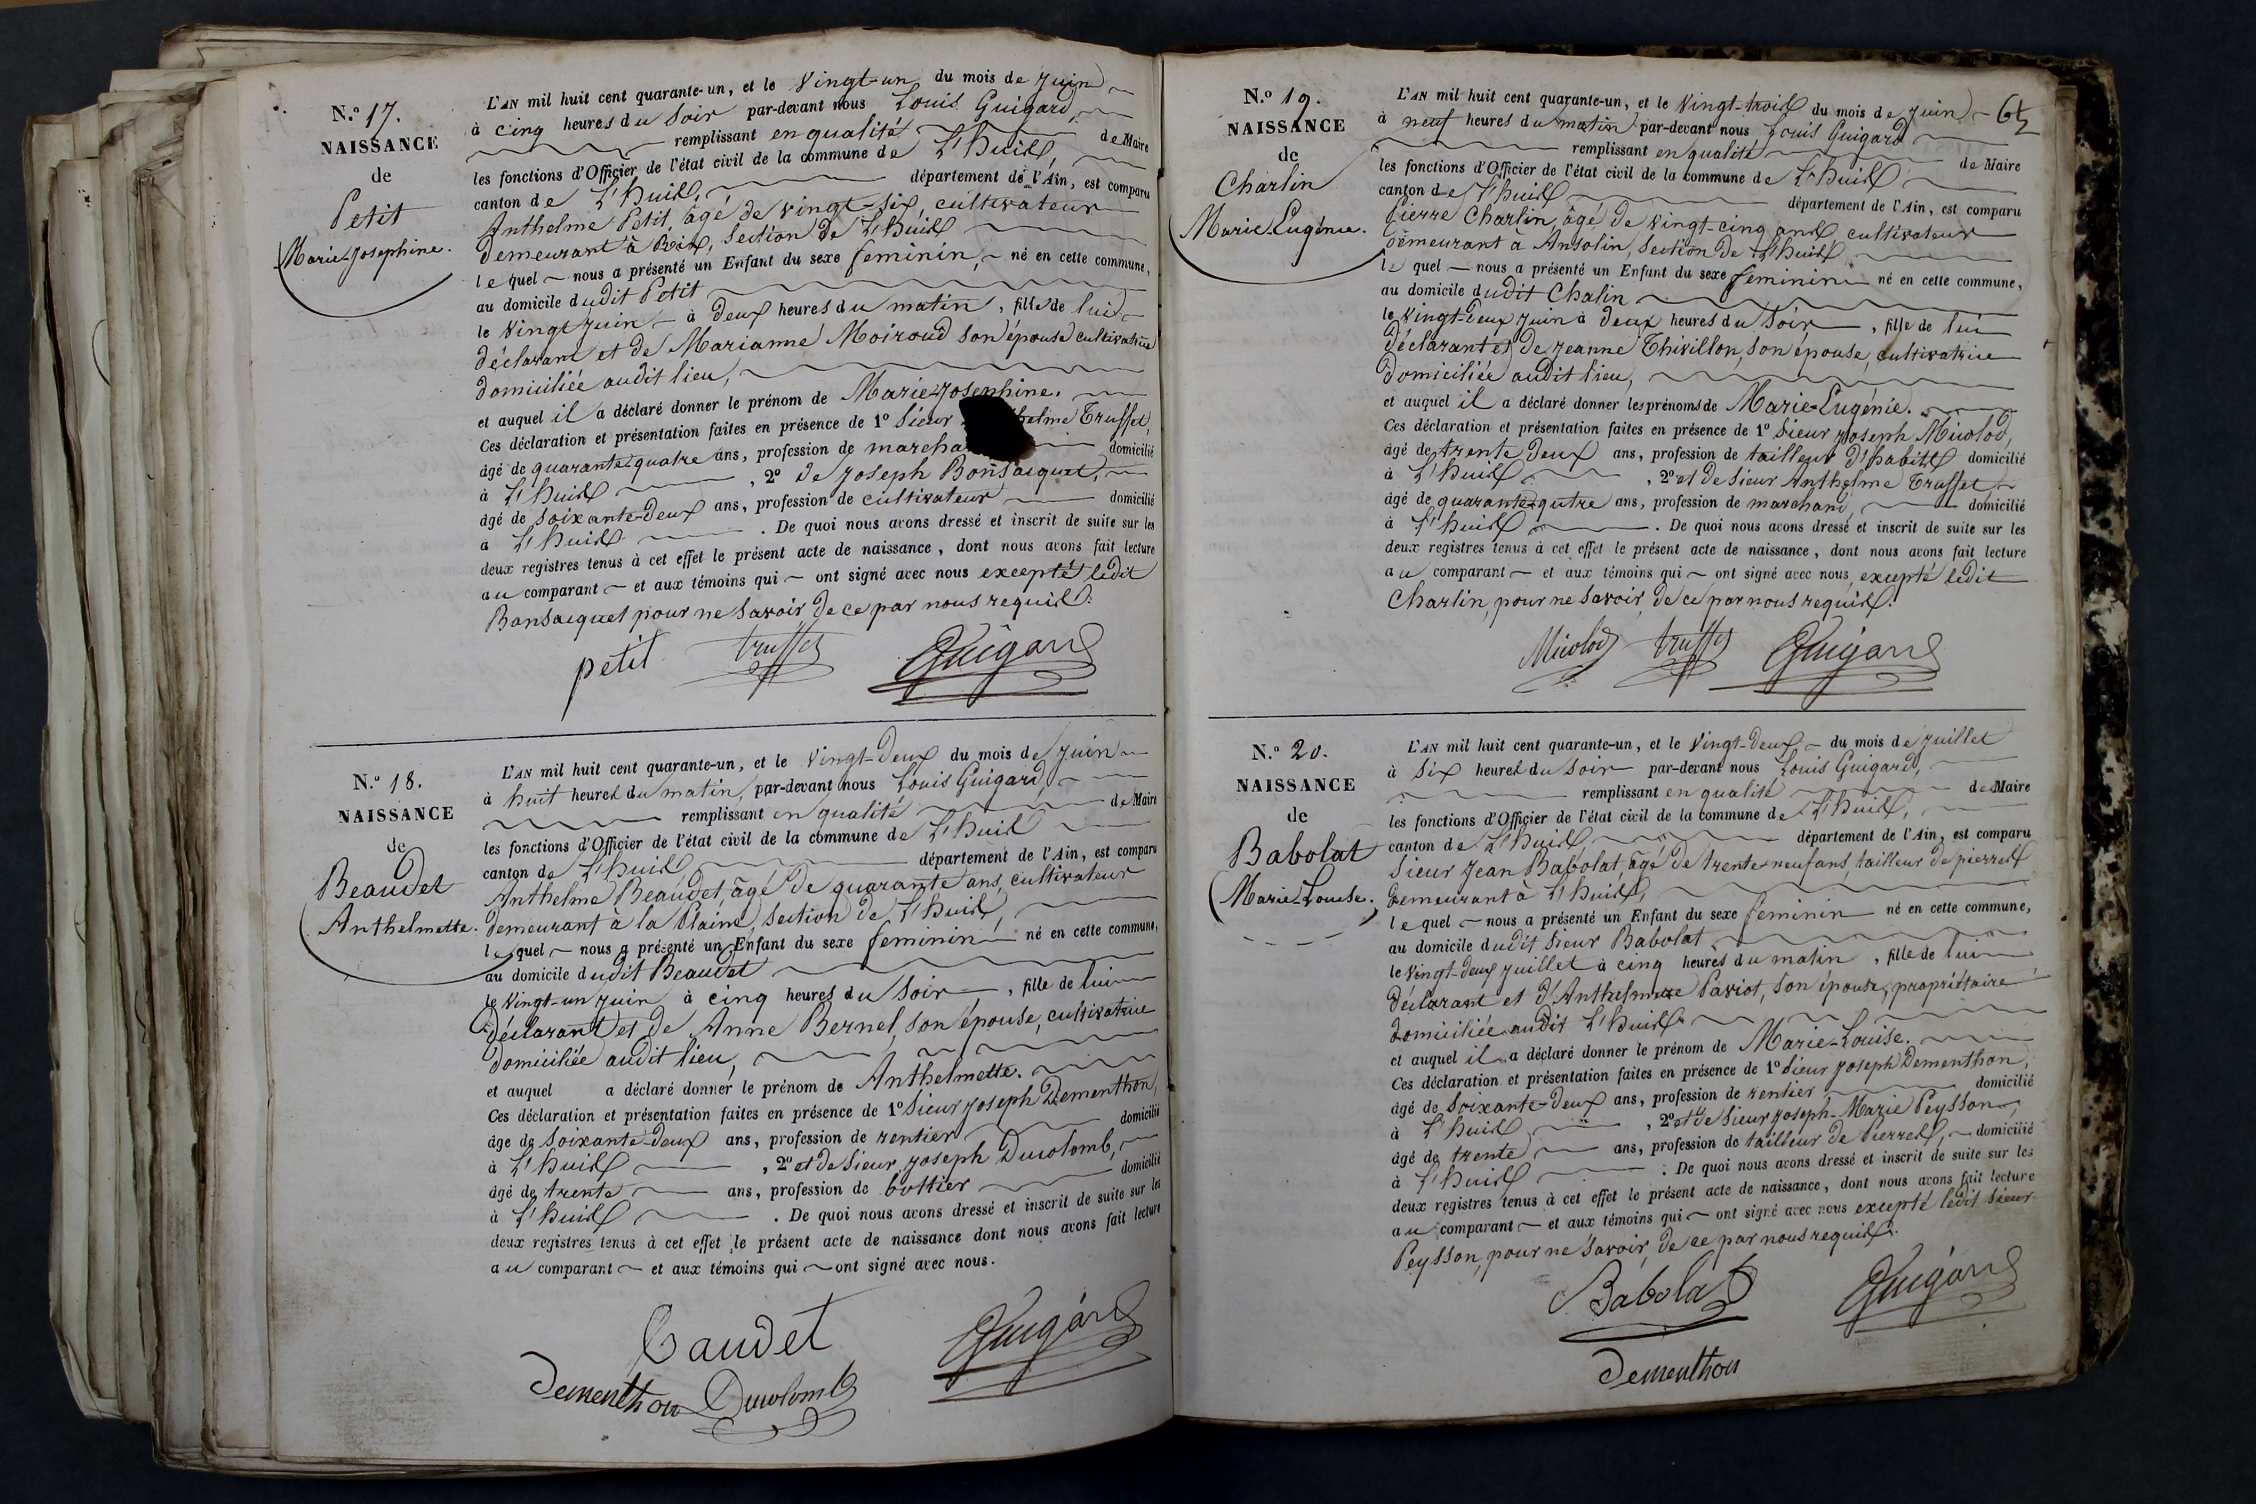 N.º 17.
NAISSANCE
de
Petit
Marie-Josephine.
L'AN mil huit cent quarante-un, et le Vingt-un du mois de Juin
à cinq heures du Soir par-devant nous Louis Guigard,
remplissant en qualité de Maire
les fonctions d'Officier de l'état civil de la commune de L'huis,
canton de L'huis, département de l'Ain, est comparu
Anthelme Petit, âgé de vingt-six, cultivateur
demeurant à Rix, Section de L'huis
lequel nous a présenté un Enfant du sexe feminin, né en cette commune,
au domicile dudit Petit
le Vingt Juin à deux heures du matin, fille de lui
déclarant et de Marianne Moiroud son épouse cultivatrice
domiciliée audit lieu,
et auquel il a déclaré donner le prénom de Marie-Josephine.
Ces déclaration et présentation faites en présence de 1º Sieur helme Truffet,
âgé de quarante-quatre ans, profession de marcha domicilié
à L'huis, 2º de Joseph Bonsacquet,
âgé de soixante-deux ans, profession de cultivateur domicilié
à L'huis. De quoi nous avons dressé et inscrit de suite sur les
deux registres tenus à cet effet le présent acte de naissance, dont nous avons fait lecture
au comparant et aux témoins qui ont signé avec nous excepté ledit
Bonsacquet pour ne Savoir de ce par nous requis.
petit truffet Guigard
N.º 18.
NAISSANCE
de
Beaudet
Anthelmette.
L'AN mil huit cent quarante-un, et le Vingt-Deux du mois de Juin
à huit heures du matin, par-devant nous Louis Guigard,
remplissant en qualité de Maire
les fonctions d'Officier de l'état civil de la commune de L'huis
canton de L'huis, département de l'Ain, est comparu
Anthelme Beaudet, âgé de quarante ans, cultivateur
demeurant à la Plaine, Section de L'huis,
lequel nous a présenté un Enfant du sexe feminin né en cette commune,
au domicile dudit Beaudet
le Vingt-un Juin à cinq heures du Soir, fille de lui
déclarant et de Anne Bernel, son épouse, cultivatrice
domiciliée audit lieu,
et auquel a déclaré donner le prénom de Anthelmette.
Ces déclaration et présentation faites en présence de 1º Sieur Joseph Dementhon,
âge de Soixante-deux ans, profession de rentier domicilié
à L'huis, 2º et de Sieur Joseph Ducolomb,
âgé de trente ans, profession de bottier domicilié
à L'huis. De quoi nous avons dressé et inscrit de suite sur les
deux registres tenus à cet effet le présent acte de naissance dont nous avons fait lecture
au comparant et aux témoins qui ont signé avec nous.
Baudet Guigard
Dementhon Ducolomb
65
N.º 19.
NAISSANCE
de
Charlin
Marie-Eugénie.
L'AN mil huit cent quarante-un, et le Vingt-trois du mois de Juin
à neuf heures du matin par-devant nous Louis Guigard
remplissant en qualité de Maire
les fonctions d'Officier de l'état civil de la commune de L'huis
canton de L'huis département de l'Ain, est comparu
Pierre Charlin, âgé de vingt-cinq ans cultivateur
demeurant à Ansolin, Section de L'huis
lequel nous a présenté un Enfant du sexe feminin né en cette commune,
au domicile dudit Chalin
le Vingt-deux Juin à deux heures du Soir, fille de lui
déclarant et de Jeanne Thivillon, son épouse, cultivatrice
domiciliée audit lieu,
et auquel il a déclaré donner les prénoms de Marie-Eugénie.
Ces déclaration et présentation faites en présence de 1º Sieur Joseph Micolod,
âgé de trente deux ans, profession de tailleur d'habits domicilié
à L'huis, 2º et de Sieur Anthelme Truffet
âgé de quarante-qutre ans, profession de marchand, domicilié
à L'huis. De quoi nous avons dressé et inscrit de suite sur les
deux registres tenus à cet effet le présent acte de naissance, dont nous avons fait lecture
au comparant et aux témoins qui ont signé avec nous, excepté ledit
Charlin, pour ne Savoir, de ce par nous requis.
Micolod truffet Guigard
N.º 20.
NAISSANCE
de
Babolat
Marie-Louise.
L'AN mil huit cent quarante-un, et le Vingt-deux du mois de Juillet
à Six heures du Soir par-devant nous Louis Guigard,
remplissant en qualité de Maire
les fonctions d'Officier de l'état civil de la commune de L'huis,
canton de L'huis, département de l'Ain, est comparu
Sieur Jean Babolat, âgé de trente-neuf ans, tailleur de pierres
demeurant à L'huis,
lequel nous a présenté un Enfant du sexe feminin né en cette commune,
au domicile dudit Sieur Babolat
le Vingt-deux Juillet à cinq heures du matin, fille de lui
déclarant et d'Anthelmette Paviot, son épouse, propriétaire
domiciliée audit L'huis
et auquel il a déclaré donner le prénom de Marie-Louise.
Ces déclaration et présentation faites en présence de 1º Sieur Joseph Dementhon,
âgé de Soixante-deux ans, profession de rentier domicilié
à L'huis, 2º et de Sieur Joseph-Marie Peysson,
âgé de trente ans, profession de tailleur de Pierres, domicilié
à L'huis. De quoi nous avons dressé et inscrit de suite sur les
deux registres tenus à cet effet le présent acte de naissance, dont nous avons fait lecture
au comparant et aux témoins qui ont signé avec nous excepté ledit Sieur
Peysson, pour ne Savoir, de ce par nous requis.
Babolat Guigard
Dementhon